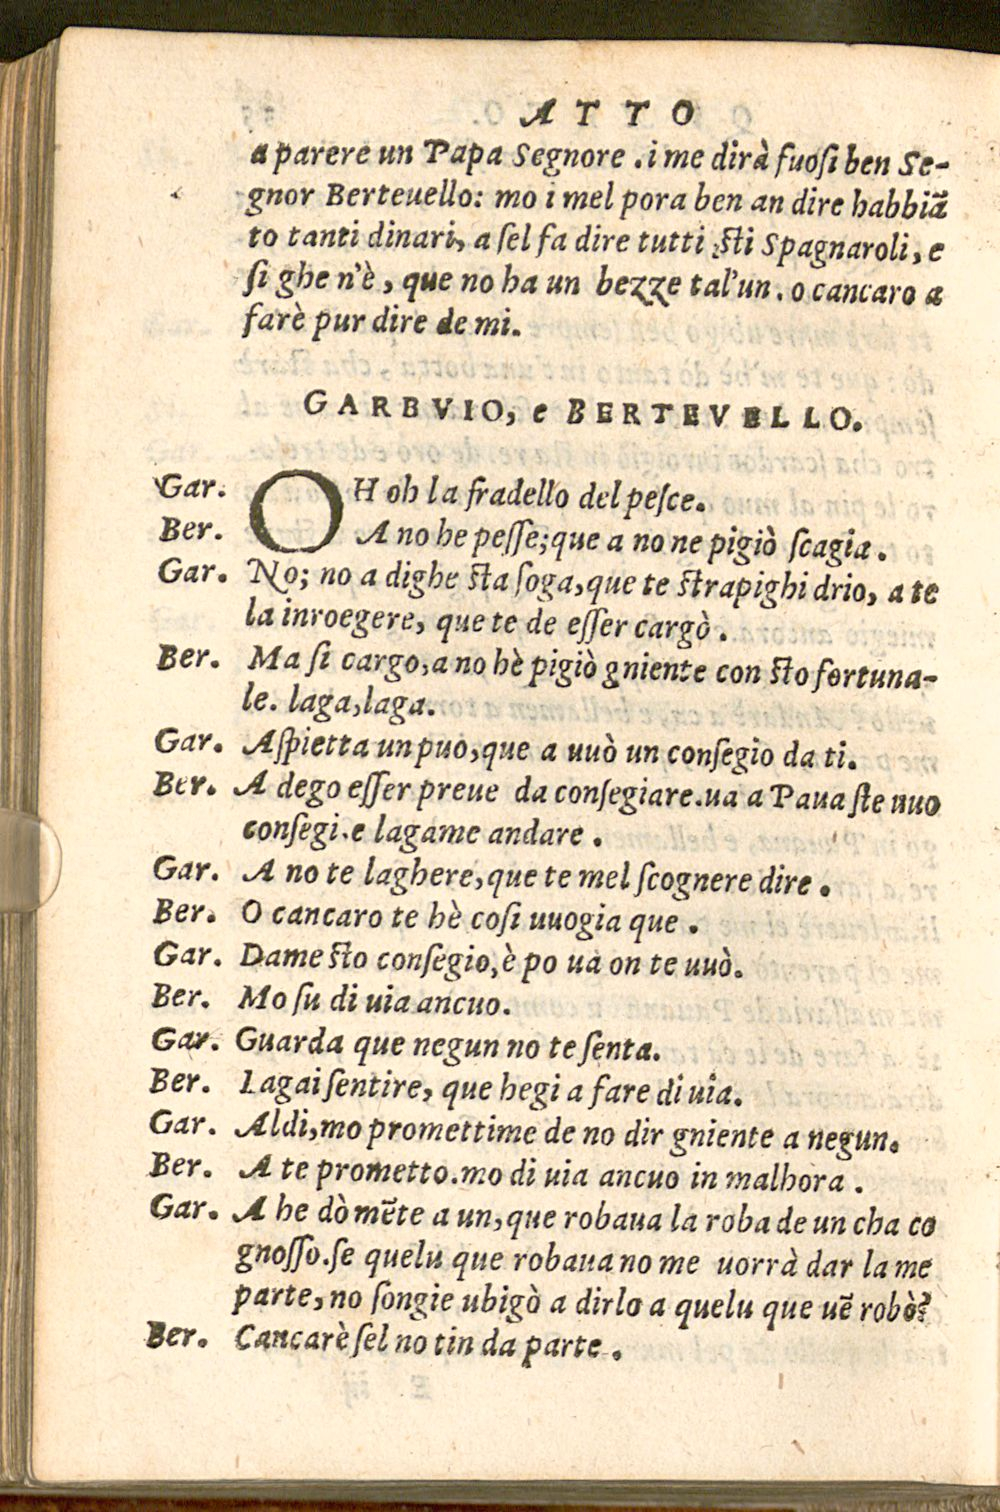 ATTO
a parere un Papa Segnore . i me dirà fuoſi ben Se-
gnor Berteuello: mo i mel pora ben an dire habbiã
to tanti dinari, a ſel fa dire tutti ſti Spagnaroli, e
ſi ghe n'è, que no ha un bezze tal'un. o cancaro a
farè pur dire de mi.
GARBVIO, e BERTEVELLO.
Gar. OH oh la fradello del peſce.
Ber. A no he peſſe; que a no ne pigiò ſcagia.
Gar. No; no a dighe ſta ſoga, que te ſtrapighi drio, a te
la inroegere, que te de eſſer cargò.
Ber. Ma ſi cargo, a no hè pigiò gniente con ſto fortuna-
le. laga, laga.
Gar. Aſpietta un puo, que a uuò un conſegio da ti.
Ber. A dego eſſer preue da conſegiare. ua a Paua ſte nuo
conſegi. e lagame andare.
Gar. A no te laghere, que te mel ſcognere dire.
Ber. O cancaro te hè coſi uuogia que.
Gar. Dame ſto conſegio, è po ua on te uuò.
Ber. Mo ſu di uia ancuo.
Gar. Guarda que negun no te ſenta.
Ber. Lagai ſentire, que hegi a fare di uia.
Gar. Aldi, mo promettime de no dir gniente a negun.
Ber. A te prometto. mo di uia ancuo in malhora.
Gar. A he dò mẽte a un, que robaua la roba de un cha co
gnoſſo. ſe quelu que robaua no me uorrà dar la me
parte, no ſongie ubigò a dirlo a quelu que uẽ robò?
Ber. Cancarè ſel no tin da parte.